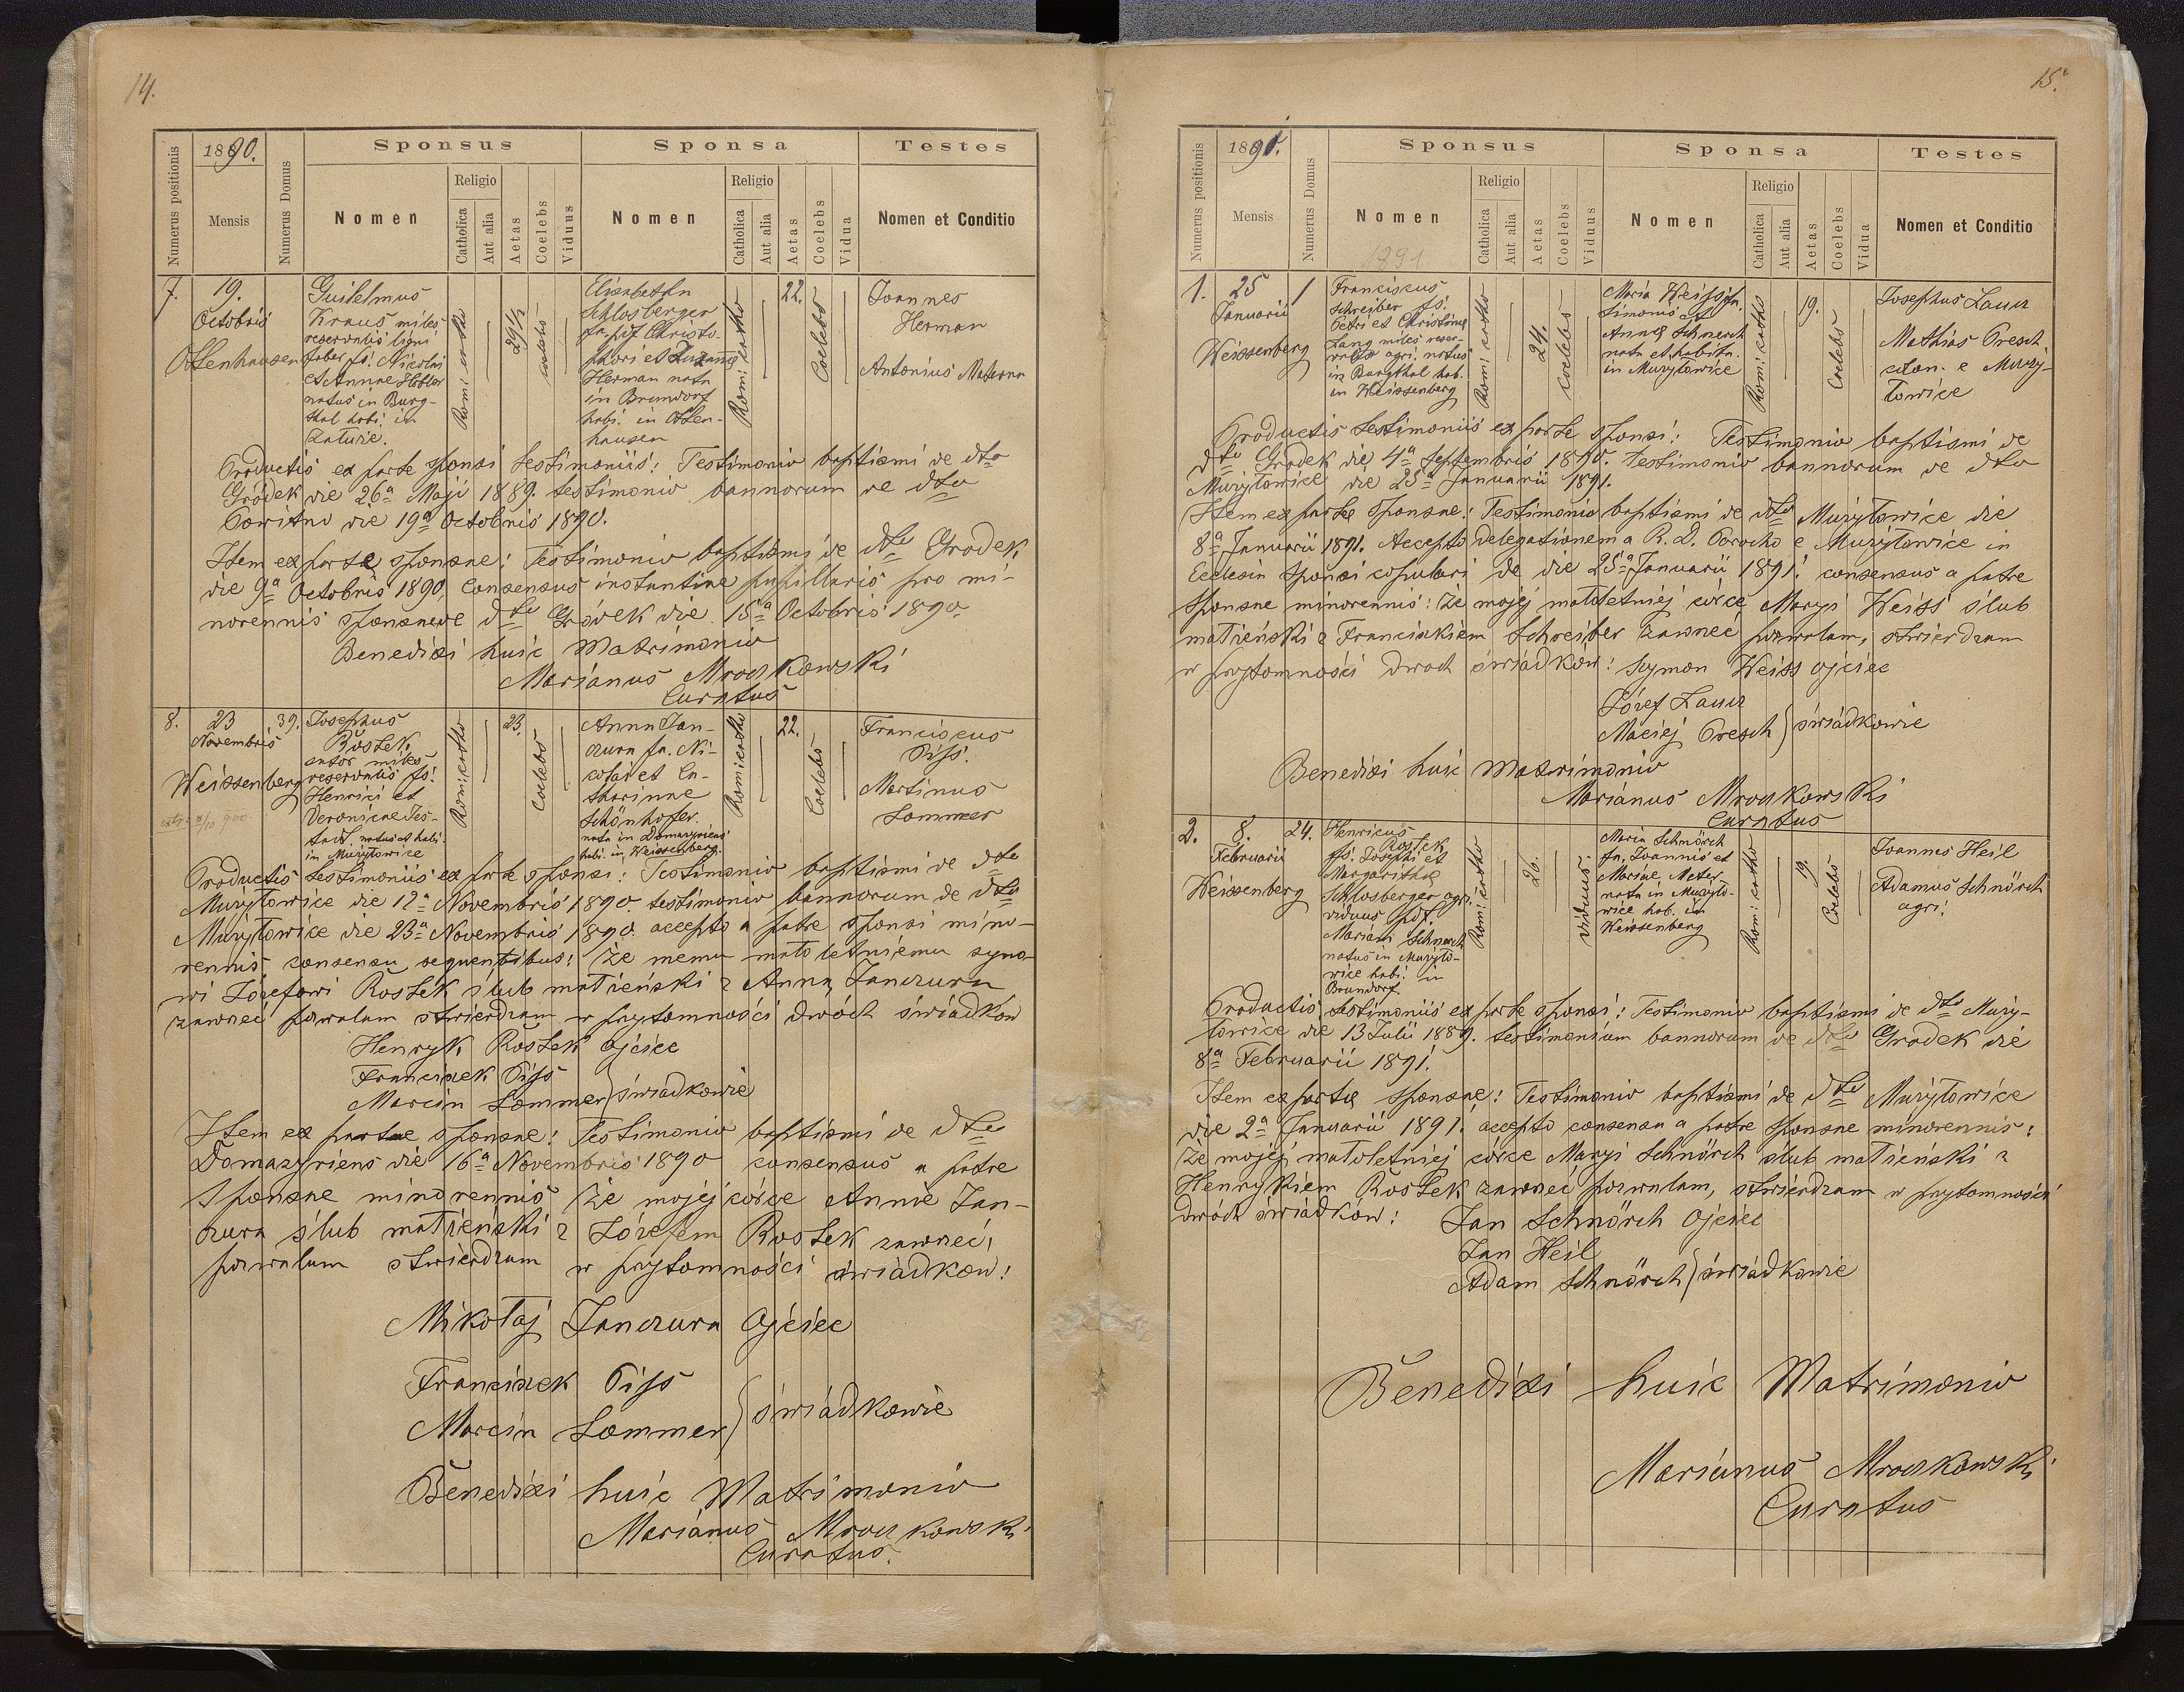 14.
Numerus positionis
1890.
Mensis
Numerus Domus
Sponsus
Nomen
Religio
Catholica
Aut alia
Aetas
Coelebs
Viduus
Sponsa
Nomen
Religio
Catholica
Aut alia
Aetas
Coelebs
Vidua
Testes
Nomen et Conditio
7.
19.
Octobris
Ottenhausen
Guilelmus
Kraus miles
reservatus ligni
faber fs. Nicolai
et Annae
natus in Burg-
thal habi. in
Załuże.
Rom: catho
29 1/2
coelebs
Elisabetha
Schlosberger
fa. pdf Christo-
phori et Zuzanna
Herman nata
in Brundorf
habi. in Otten-
hausen
Rom: catho
22.
Coelebs
Joannes
Herman
Antonius Materna
Productis ex parte sponsi testimoniis: Testimonio baptismi de dto
Gródek die 26a Maji 1889. testimonio bannorum de dto
Powitno die 19a Octobris 1890.
Item ex parte sponsae: Testimonio baptismi de dto Grodek
die 9a Octobris 1890 consensus instantiae pupillaris pro mi-
norennis sponsae de dto Gródek die 15a Octobris 1890
Benedixi huic Matrimonio
Marianus Mroczkowski
Curatus
8.
23
Novembris
Weissenberg
39.
Josephus
Rostek
sutor miles
reservatus fs.
Henrici et
Veronicae Jes-
natus et habi.
in Mużyłowice
Rom: catho
23.
Coelebs
Anna Jan-
czura fa. Ni-
colai et Ca-
tharinae
Schönhofer
nata in Domazyriens
habi. in Weissenberg.
Rom: catho
22.
Coelebs
Franciscus
Piss.
Martinus
Sommer
Productis testimoniis ex parte sponsi: Testimonio baptismi de dto
Mużyłowice die 12a Novembris 1890. testimonio bannorum de dto
Mużyłowice die 23a Novembris 1890. accepto a patre sponsi mino-
rennis, consensu sequentibus: Że memu małoletniemu syno-
wi Józefowi Rostek ślub małżeński z Anną Janczura
zawrzeć pozwalam stwierdzam w przytomności dwóch świadków
Henryk Rostek ojciec
Franciszek Piss
Marcin Sommer } świadkowie
Item ex partae sponsae: Testimonio baptismi de dto
Domazyriens die 16a Novembris 1890 consensus a patre
sponsae minorennis Że mojej córce Annie Jan-
czura ślub małżeński z Józefem Rostek zawrzeć,
pozwalam stwierdzam w przytomności świadków:
Mikołaj Janczura Ojciec
Franciszek Piss
Marcin Sommer } świadkowie
Benedixi huic Matrimonio
Marianus Mroczkowski
Curatus.
15.
Numerus positionis
1891.
Mensis
Numerus Domus
Sponsus
Nomen
1891
Religio
Catholica
Aut alia
Aetas
Coelebs
Viduus
Sponsa
Nomen
Religio
Catholica
Aut alia
Aetas
Coelebs
Vidua
Testes
Nomen et Conditio
1.
25
Januarii
Weissenberg
1
Franciscus
Schreiber fs.
Petri et Christinae
Lang miles reser-
vatus agri. natus
in Burgthal hab.
in Weissenberg
Rom: catho
24.
Coelebs
Maria Weiss fa.
Simonis et
Annae Schnerch
nata et habita.
in Mużyłowice
Rom: catho
19.
Coelebs
Josephus Lauer
Mathias Presch
colon. e Muży-
łowice
Productis testimoniis ex parte sponsi: Testimonio baptismi de
dto Gródek die 4a Septembris 1890. Testimonio bannorum de dto
Mużyłowice die 25a Januarii 1891.
Item ex parte sponsae: Testimonio baptismi de dto Mużyłowice die
8a Januarii 1891. Accepto delegationem a R. D. Parocho e Mużyłowice in
Ecclesia sponsi copulari de die 25a Januarii 1891. consensus a patre
sponsae minorennis: Że mojej małoletniej córce Maryi Weiss ślub
małżeński z Franciszkiem Schreiber zawrzeć pozwalam, stwierdzam
w przytomności dwoch świadków: Szymon Weiss ojciec
Józef Lauer
Maciej Presch } świadkowie
Benedixi huic Matrimonio
Marianus Mroczkowski
Curatus
2.
8.
Februarii
Weissenberg
24.
Henricus
Rostek
fs. Josephi et
Margarithae
Schlosberger agri.
viduus pdf.
Mariam Schnerch
natus in Mużyło-
wice habi. in
Brundorf
Rom: catho
26.
viduus.
Maria Schnörch
fa. Joannis et
Mariae Meter
nata in Mużyło-
wice hab. in
Weissenberg
Rom: catho
19.
Coelebs
Joannes Heil
Adamus Schnörch
agri.
Productis testimoniis ex parte sponsi: Testimonio baptismi de dto Muży-
łowice die 13 Julii 1889. testimonium bannorum de dto Grodek die
8a Februarii 1891.
Item ex parte sponsae: Testimonio baptismi de dto Mużyłowice
die 2a Januarii 1891. accepto consensu a patre sponsae minorennis:
Że mojej małoletniej córce Maryi Schnörch ślub małżeński z
Henrykiem Rostek zawrzeć pozwalam, stwierdzam w przytomności
dwóch świadków: Jan Schnörch Ojciec
Jan Heil
Adam Schnörch } świadkowie
Benedixi huic Matrimonio
Marianus Mroczkowski
Curatus